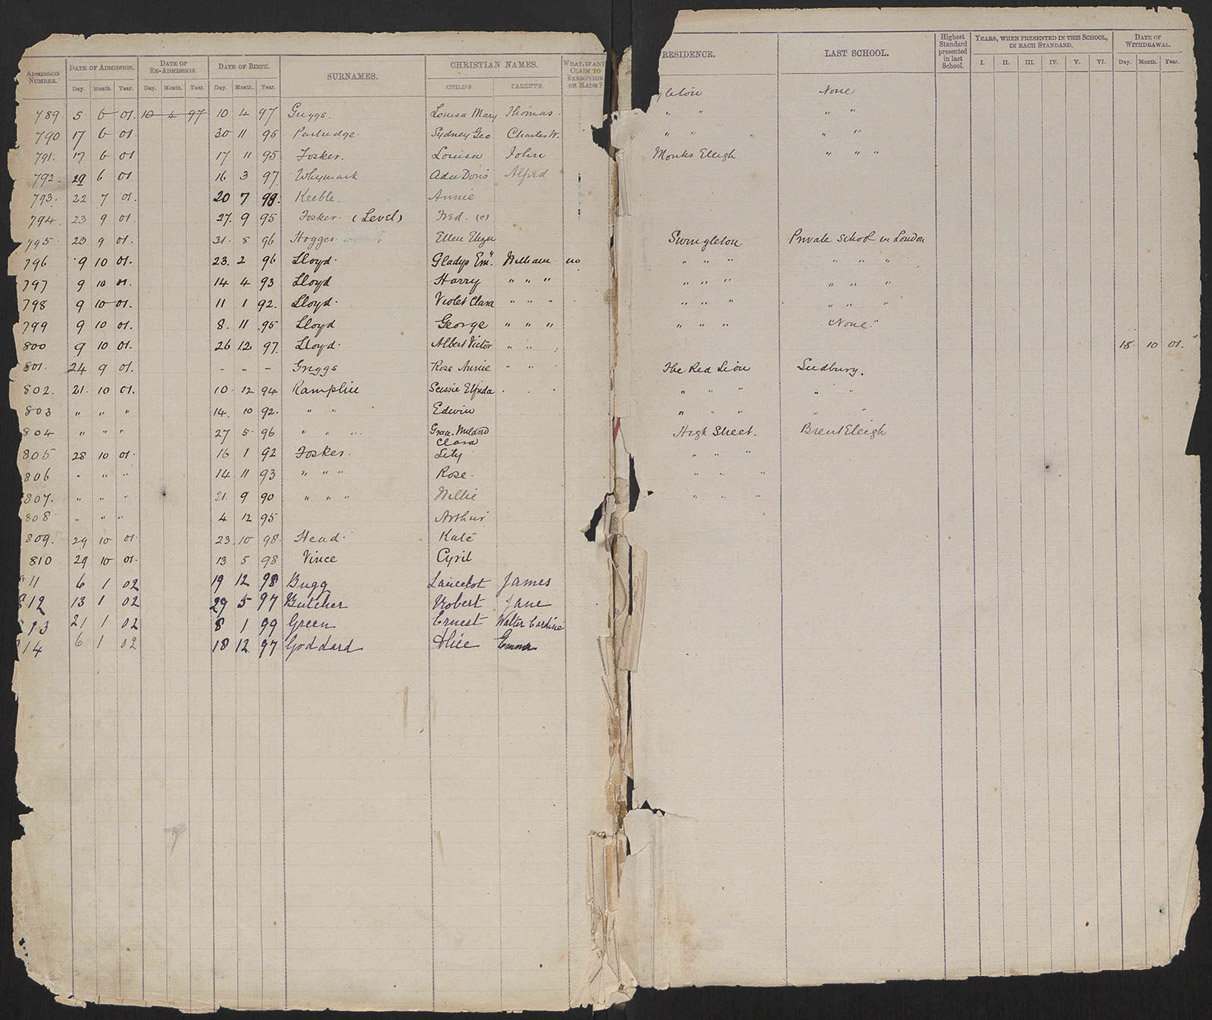 ADMISSION NUMBER. DATE OF ADMISSION. DATE OF RE-ADMISSION. DATE OF BIRTH. SURNAMES. CHRISTIAN NAMES. WHAT, IF ANY CLAIM TO EXEMPTION BE MADE?
Day. Month. Year. Day. Month. Year. Day. Month. Year. CHILD'S. PARENT'S.
789 5 6 01. 10 4 97 10 4 97 Griggs Louisa Mary Thomas
790 17 6 01 30 11 95 Partridge Sydney Geo Charles W.
791. 17 6 01 17 11 95. Fosker. Louisa John
792. 29 6 01 16 3 97. Whymark Ada Doris Alfred
793. 22 7 01. 20 7 98. Keeble. Annie
794. 23 9 01. 27. 9 95 Fosker. (Level) Fred. (c)
795. 23 9 01. 31. 8 96 Hogger Ellen Eliza
796 9 10 01. 23. 2 96 Lloyd. Gladys Em. William no
797 9 10 01. 14 4 93 Lloyd Harry " " "
798 9 10 01. 11 1 92. Lloyd. Violet Clara " " "
799 9 10 01. 8. 11 95 Lloyd George " " "
800 9 10 01. 26 12 97. Lloyd. Albert Victor " "
801. 24 9 01. - - - Griggs Rose Annie " "
802. 21. 10 01. 10. 12 94 Ramplin
803 " " " 14. 10 92. " " Edwin
804 " " " 27 5 96 " " Mildred
Clara
805 28 10 01. 16 1 92 Fosker. Lily
806 " " " 14. 11 93 " " " Rose.
807. " " " 21 9 90 " " " Nellie
808 " " " 4 12 95 Arthur
809. 29 10 01. 23. 10 98 Head. Kate
810 29 10 01. 13 5 98 Vince Cyril
11 6 1 02 19 12 98 Bugg Lancelot James
12 13 1 02 29 5 97 Butcher Robert Jane
13 21 1 02 8 1 99 Green Ernest Walter
14 6 1 02 18 12 97 Goddard Alice Emma
RESIDENCE. LAST SCHOOL. Highest Standard presented in last School. YEARS, WHEN PRESENTED IN THIS SCHOOL, IN EACH STANDARD. DATE OF WITHDRAWAL.
I. II. III. IV. V. VI. Day. Month. Year.
gleton None
" "
" " "
Monks Eleigh " " "
Swingleton Private School in London
" " " " " "
" " " " " "
" " " " " "
" " " None
18 10 01.
The Red Lion Sudbury.
" " " "
" " " "
High Street. Brent Eleigh
" " "
" " "
" " "